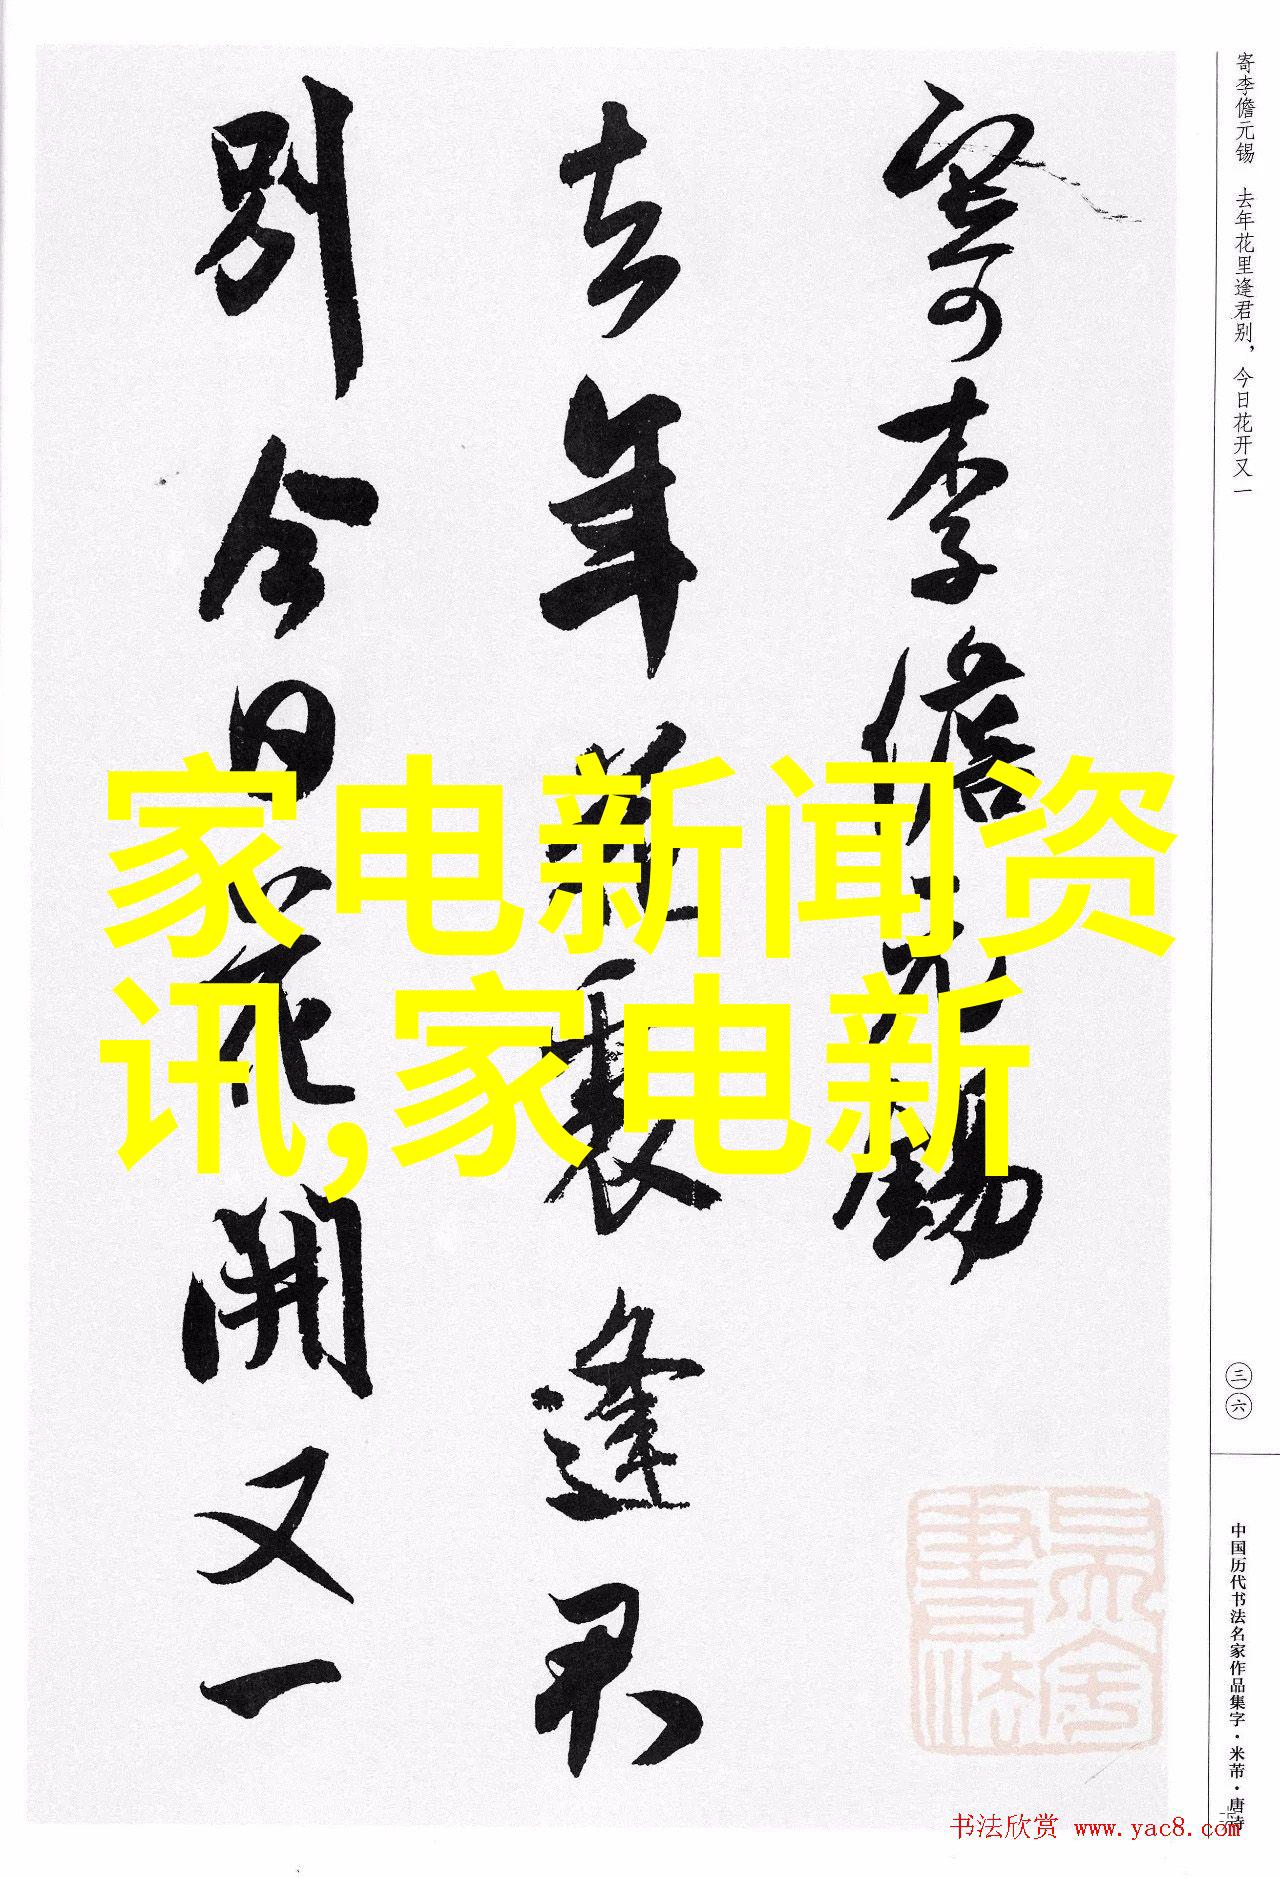 寄李儋元锡
去年花里逢君
别今日花开又一
寄李儋元锡　去年花里逢君别，今日花开又一
三六
中国历代书法名家作品集字·米芾·唐诗
家电新闻资
讯,家电新
书法欣赏 www.yac8.com